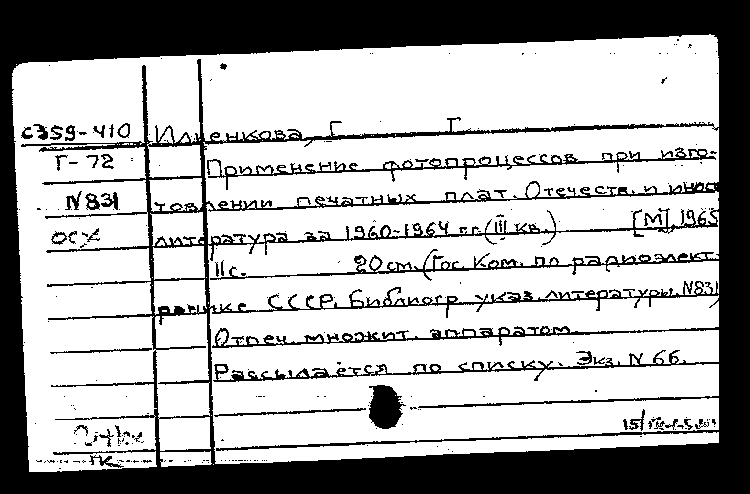 С359-410 Илиенкова, Г Г
Г-72 Применение фотопроцессов при изго-
N831 товлении печатных плат. Отечеств. и иност
ОСУ литература за 1960-1964 г.г. (III кв.) [М], 1965
11с. 20см. (Гос. Ком. по радиоэлект-
ронике СССР. Библиогр указ. литературы. N831)
Отпеч. множит. аппаратом.
Рассылается по списку. Экз. N 66.
15/
ГК